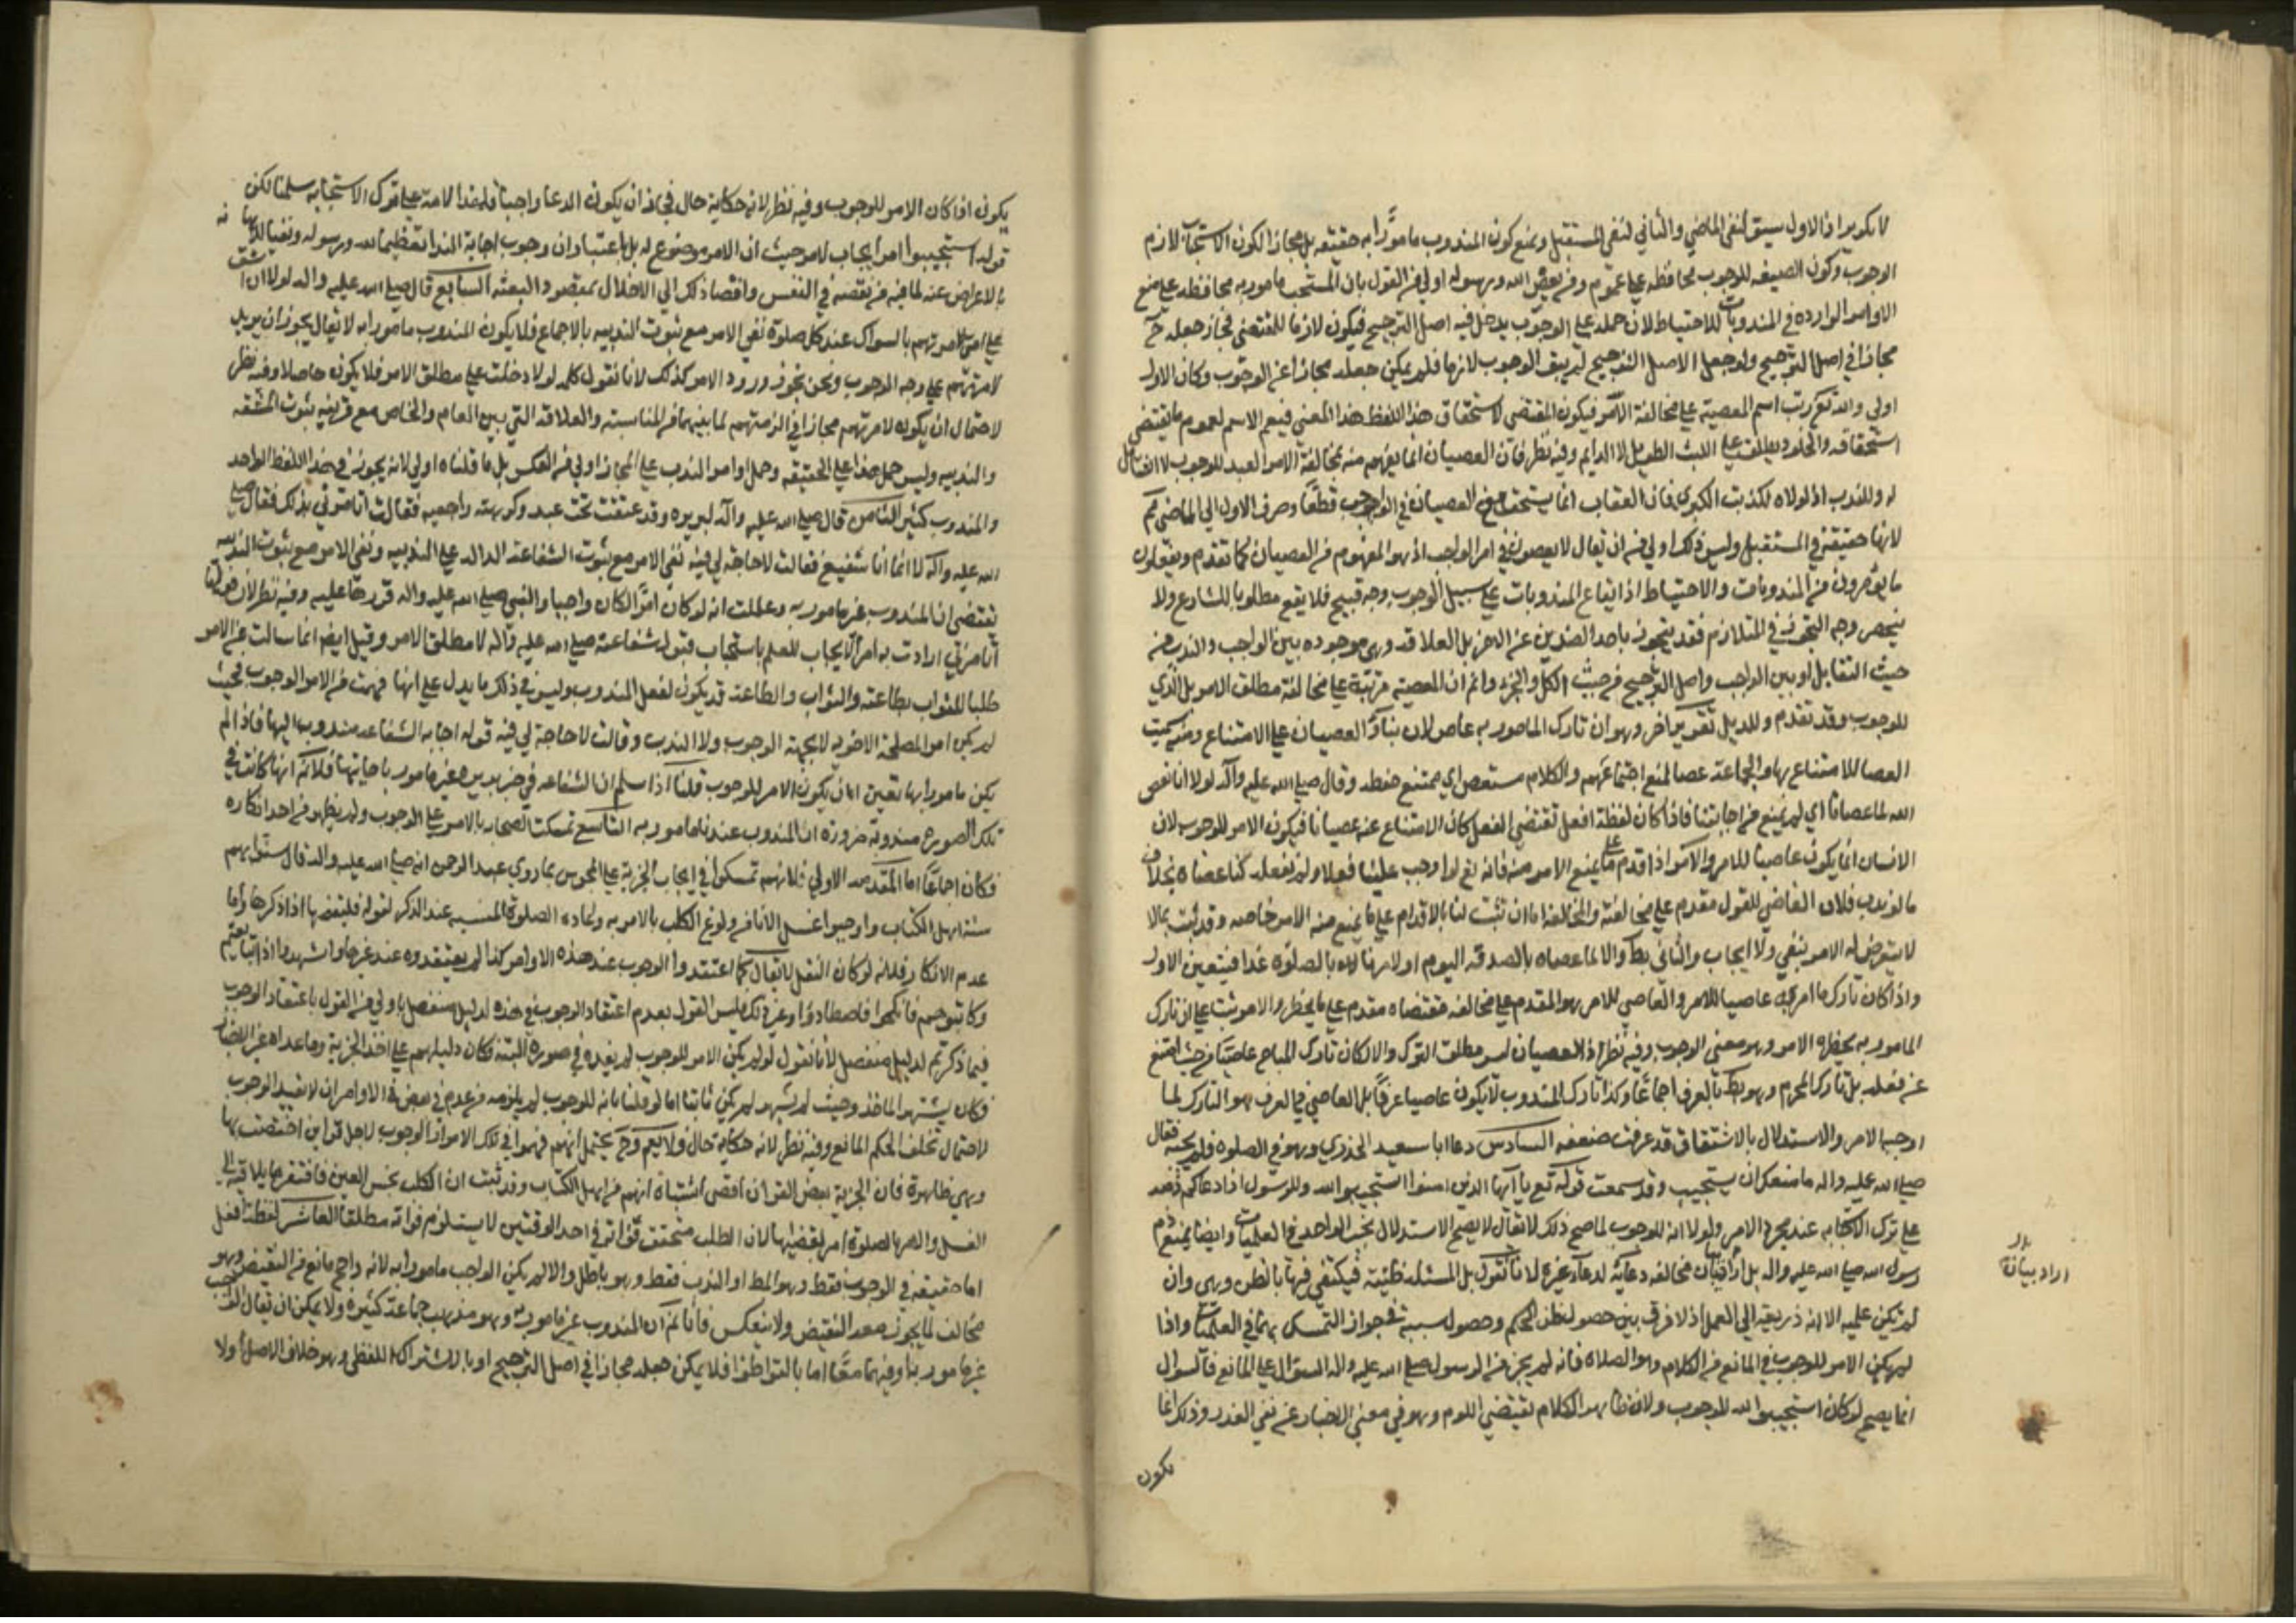 لا تكرير اذ الاول سيق لنفي الماضي والثاني لنفي المستقبل ونمنع كون المندوب مامورا به حقيقه بل مجازا لكون الاستحباب لازم
الوجوب وكون الصيغه للوجوب محافظه على عموم ومن يعص الله ورسوله اولى من القول بان المستحب مامور به محافظه على صيغ
الاوامر الوارده في المندوبات للاحتياط لان حمله على الوجوب يدخل فيه اصل الترجيح فيكون لازما للمقتضى فجاز جعله ح
مجازا في اصل الترجيح ولو جعل الاصل الترجيح لم يبق الوجوب لازما فلم يمكن جعله مجازا عن الوجوب وكان الاول
اولى والله تع رتب اسم المعصية على مخالفة الامر فيكون المقتضى لاستحقاق هذا اللفظ هذا المعنى فيعم الاسم لعموم ما يقتضي
استحقاقه والخلود يطلق على اللبث الطويل لا الدايم وفيه نظر فان العصيان انما يفهم منه مخالفة الامر المفيد للوجوب لا الشامل
له وللندب اذ لولاه لكذبت الكبرى فان العقاب انما يستحق مع العصيان في الواجب قطعا وصرف الاول الى الماضي تحكم
لانها حقيقة في المستقبل وليس ذلك اولى من ان يقال لا يعصون في امر الواجب اذ هو المفهوم من العصيان كما تقدم ويفعلون
ما يؤمرون من المندوبات والاحتياط اذ ايقاع المندوبات على سبيل الوجوب وجه قبيح فلا يقع مطلوبا للشارع ولا
ينحصر وجه التجوز في المتلازم فقد يتجوز باحد الضدين عن الاخر بل العلاقه وهي موجوده بين الواجب والندب من
حيث التقابل او بين الواجب واصل الترجيح من حيث الكل والجزء وانم ان المعصيه مرتبة على مخالفة مطلق الامر بل الذي
للوجوب وقد تقدم وللدليل تقرير اخر وهو ان تارك المامور به عاص لان بناء العصيان على الامتناع ومنه سميت
العصا للامتناع بها والجماعة عصا لمنع اجتماعهم والكلام مستعص اي ممتنع حفظه وقال صلى الله عليه وآله لولا انا نعصي
الله لما عصانا اي لم يمتنع من اجابتنا فاذا كان لفظة افعل تقتضي الفعل كان الامتناع عنه عصيانا فيكون الامر للوجوب لان
الانسان انما يكون عاصيا للامر والآمر اذا اقدم على ما يمنع الامر منه فانه تع لو اوجب علينا فعلا ولم نفعله كنا عصاه بخلاف
ما لو ندب فلان العاصي للقول مقدم على مخالفته والمخالفة اما ان تثبت لنا بالاقدام على ما يمنع منه الامر خاصه وقد ثبت بما لا
لا يتعرض له الامر بنفي ولا ايجاب والثاني بط والا لما عصاه بالصدقه اليوم او لامرنا له بالصلوة غدا فيتعين الاول
واذا كان تارك ما امر به عاصيا للامر والعاصي للامر هو المقدم على مخالفه مقتضاه مقدم على ما يحظره الامر ثبت على ان تارك
المامور به يحظره الامر وهو معنى الوجوب وفيه نظر اذ العصيان ليس مطلق الترك والا لكان تارك المباح عاصيا من حيث امتنع
عن فعله بل تارك المحرم وهو بط بالعرف اجماعا وكذا تارك المندوب لا يكون عاصيا عرفا بل العاصي في العرف هو التارك لما
اوجبه الامر والاستدلال بالاشتقاق قد عرفت ضعفه السادس دعا ابا سعيد الخدري وهو في الصلوه فلم يجبه فقال
صلى الله عليه واله ما منعك ان تستجيب وقد سمعت قوله تع يا ايها الذين امنوا استجيبوا لله وللرسول اذا دعاكم فذمه
على ترك الاستجابه عند مجرد الامر ولولا انه للوجوب لما صح ذلك لا يقال لا يصح الاستدلال بخبر الواحد في العلميات وايضا يمنع ذم
رسول الله صلى الله عليه واله بل اراد بيان مخالفه دعائه لدعاء غيره لانا نقول بل المسئله ظنية فيكتفى فيها بالظن وهي وان
لم تكن علميه الا انه ذريعة الى العمل اذ لا فرق بين حصول ظن الحكم وحصول سببه في جواز التمسك بهما في العلميات واذا
لم يكن الامر للوجوب في المانع من الكلام وهو الصلاه فانه لم يجز من الرسول صلى الله عليه واله السؤال على المانع فالسؤال
انما يصح لو كان استجيبوا لله للوجوب ولان ظاهر الكلام يقتضي اللوم وهو في معنى الاخبار عن نفي العذر وذلك انما
يكون
اراد بيانه
يكون اذا كان الامر للوجوب وفيه نظر لانه حكاية حال فجاز ان يكون الدعا واجبا فلهذا لامه على ترك الاستجابه سلمنا لكن
قوله استجيبوا امر ايجاب لا من حيث ان الامر موضوع له بل باعتبار ان وجوب اجابة الندا تعظيما لله ورسوله ونفيا للاهانة
بالاعراض عنه لما فيه من نقصه في النفس وافضا ذلك الى الاخلال بمقصود البعثه السابع قال صلى الله عليه واله لولا ان اشق
على امتي لامرتهم بالسواك عند كل صلوة نفي الامر مع ثبوت الندبيه بالاجماع فلا يكون المندوب مامورا به لا يقال يجوز ان يريد
لامرتهم على وجه الوجوب ونحن نجوز ورود الامر كذلك لانا نقول كلمه لولا دخلت على مطلق الامر فلا يكون حاصلا وفيه نظر
لاحتمال ان يكون لامرتهم مجازا في الزمتهم لما بينهما من المناسبه والعلاقه التي بين العام والخاص مع قرينه ثبوت المشقه
والندبيه وليس حمل هذا على الحقيقه وحمل اوامر الندب على المجاز اولى من العكس بل ما قلناه اولى لانه يجوز في هذا اللفظ الواحد
والمندوب كثير الثامن قال صلى الله عليه وآله لبريره وقد عتقت تحت عبد وكرهته راجعيه فقالت اتامرني بذلك فقال صلى
الله عليه وآله لا انما انا شفيع فقالت لا حاجة لي فيه نفي الامر مع ثبوت الشفاعة الداله على الندبيه ونفي الامر مع ثبوت الندبيه
يقتضي ان المندوب غير مامور به وعللت انه لو كان امرا لكان واجبا والنبي صلى الله عليه واله قررها عليه وفيه نظر لان قولها
اتامرني ارادت به امر الايجاب للعلم باستحباب قبول شفاعته صلى الله عليه وآله لا مطلق الامر وقيل ايضا انما سالت عن الامر
طلبا للثواب بطاعته والثواب والطاعة قد يكون لفعل المندوب وليس في ذلك ما يدل على انها فهمت من الامر الوجوب فحيث
لم يكن امرا لمصلحة الاخرويه لا بجهة الوجوب ولا الندب وقالت لا حاجة لي فيه قوله اجابه الشفاعه مندوب اليها فاذا لم
يكن مامورا بها تعين ان يكون الامر للوجوب قلنا اذا سلم ان الشفاعه في خبر بريره غير مامور باجابتها فلا نم انها كانت في
تلك الصوره مندوبة ضرورة ان المندوب عندنا مامور به التاسع تمسكت الصحابه بالامر على الوجوب ولم يظهر من احد انكاره
فكان اجماعا اما المقدمه الاولى فلانهم تمسكوا في ايجاب الجزية على المجوس بما روى عبد الرحمن انه صلى الله عليه واله قال سنوا بهم
سنة اهل الكتاب واوجبوا غسل الاناء من ولوغ الكلب بالامر به واعاده الصلوة المنسيه عند الذكر لقوله فليقضها اذا ذكرها واما
عدم الانكار فلانه لو كان لنقل لا يقال كما اعتقدوا الوجوب عند هذه الاوامر كذا لم يعتقدوه عند غيرها واشهدوا اذا تبايعتم
وكاتبوهم فانكحوا فاصطادوا وغير ذلك فليس القول بعدم اعتقاد الوجوب في هذه لدليل منفصل باولى من القول باعتقاد الوجوب
فيما ذكرتم لدليل منفصل لانا نقول لو لم يكن الامر للوجوب لم يفده في صوره البتة وكان دليلهم على اخذ الجزية وما عداه غير النص
فكان يشتهر الماخذ وحيث لم يشتهر لم يكن ثابتا اما لو قلنا بانه للوجوب لم يلزمه من عدمه في بعض الاوامر ان لا يفيد الوجوب
لاحتمال تخلف الحكم المانع وفيه نظر لانه حكاية حال فلا يعم وح يحتمل انهم فهموا في تلك الاوامر الوجوب لاجل قراين اختصت بها
وهي ظاهرة فان الجزية ببعض القران اقتضى اشتباه انهم من اهل الكتاب وقد ثبت ان الكلب نجس العين فافتقر ما يلاقيه الى
الغسل والامر بالصلوة امر بقضائها لان الطلب متحقق فواته في احد الوقتين لا يستلزم فواته مطلقا العاشر لفظة افعل
اما حقيقة في الوجوب فقط وهو المط او الندب فقط وهو باطل والا لم يكن الواجب مامورا به لانه راجح مانع من النقيض وهو
مخالف لما يجوز معه النقيض ولا ينعكس فانا نم ان المندوب غير مامور به وهو مذهب جماعة كثيرة ولا يمكن ان يقال الواجب
غير مامور به او فيهما معا اما بالتواطؤ فلا يمكن جعله مجازا في اصل الترجيح او بالاشتراك اللفظي وهو خلاف الاصل اولا